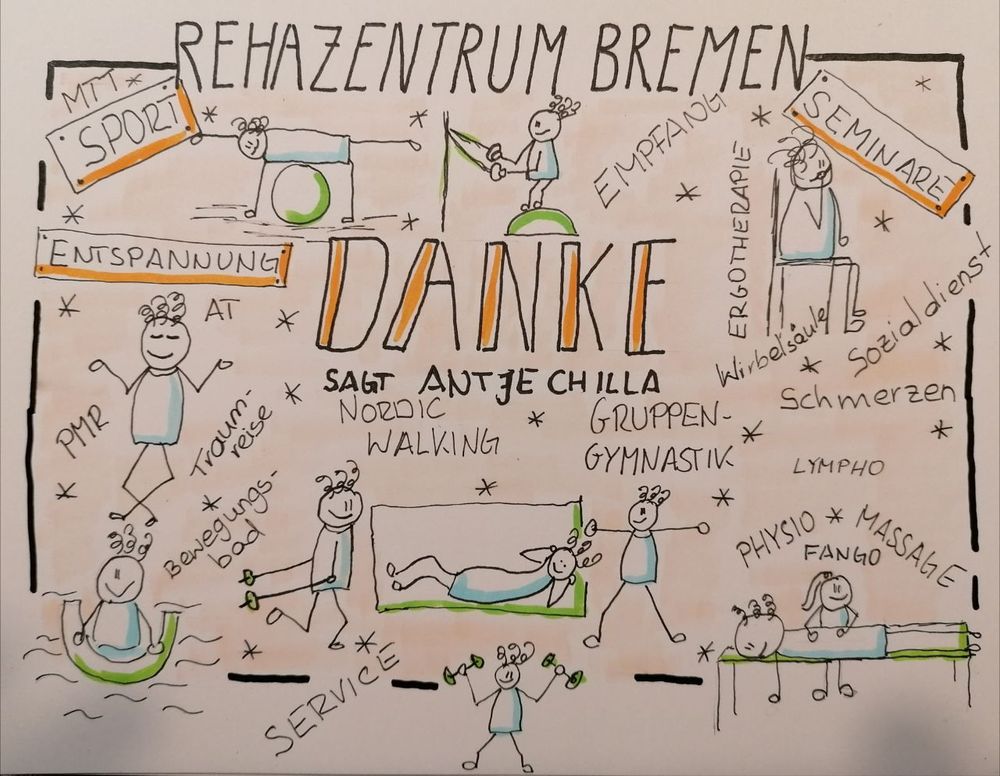 REHAZENTRUM BREMEN
MTT
SPORT
EMPFANG
SEMINARE
ERGOTHERAPIE
ENTSPANNUNG
DANKE
AT
Wirbelsäule
Sozialdienst
SAGT ANTJE CHILLA
Schmerzen
PMR
Traum-
reise
NORDIC
WALKING
GRUPPEN-
GYMNASTIK
LYMPHO
Bewegungs-
bad
PHYSIO * MASSAGE
FANGO
SERVICE